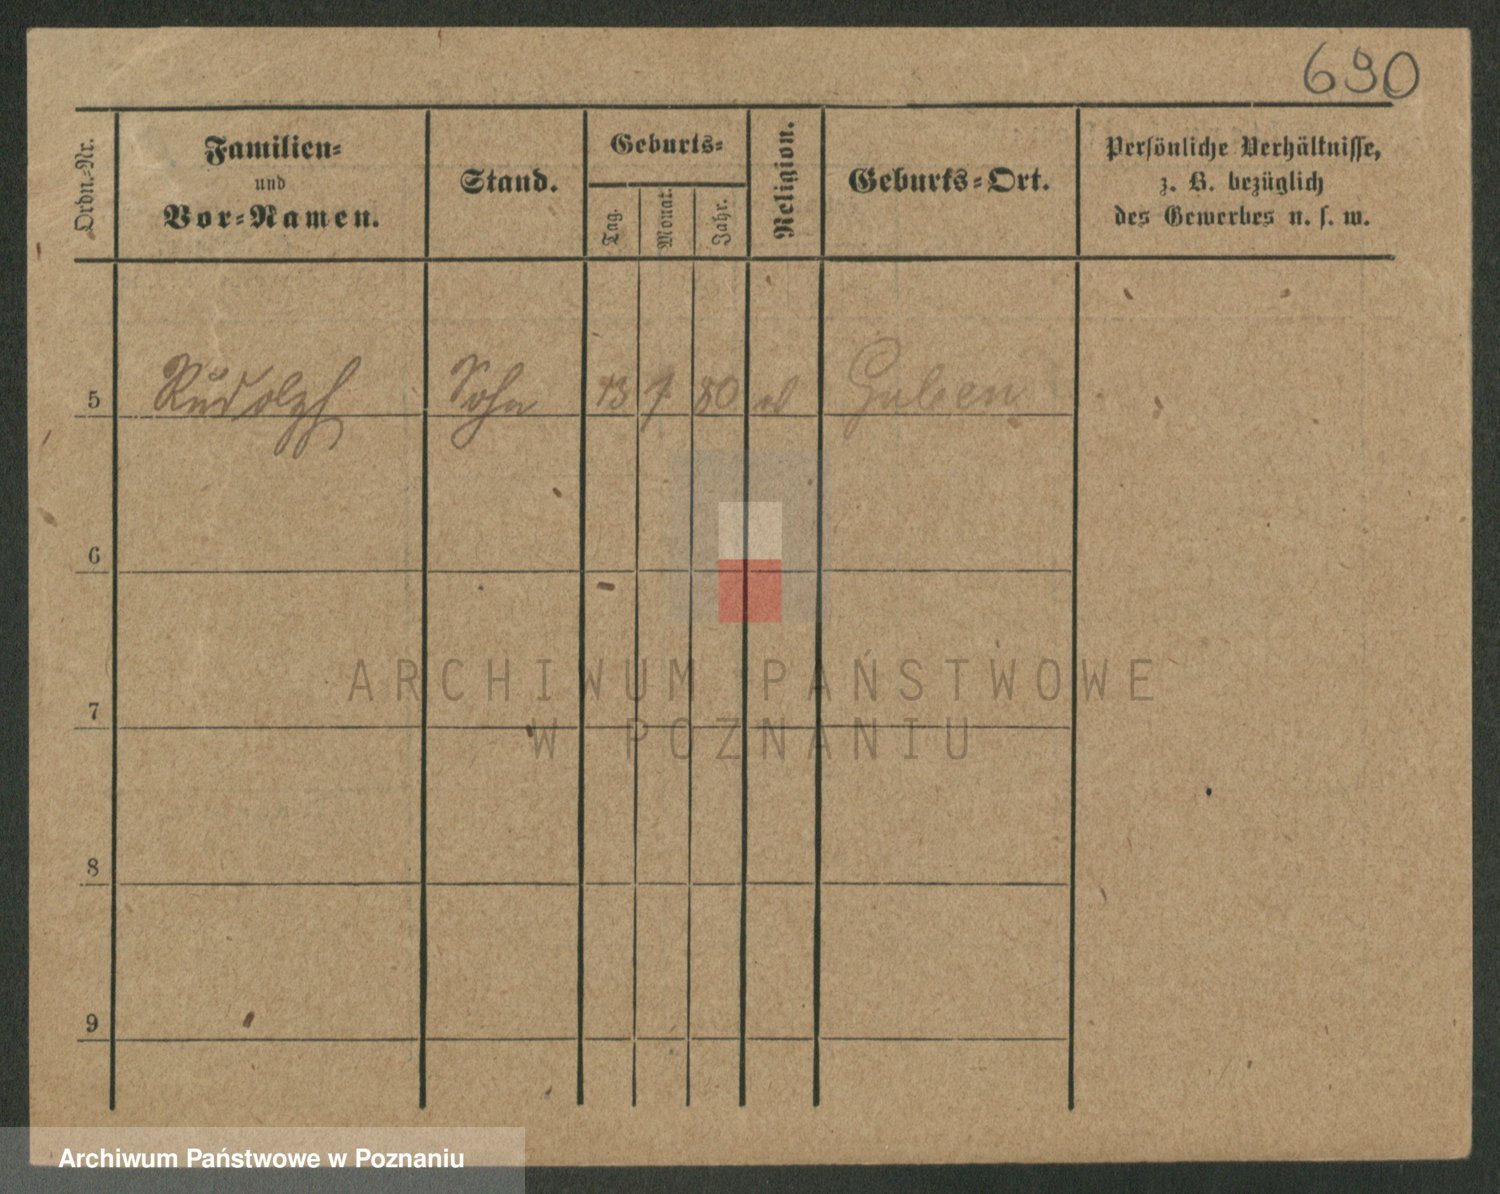 690
Ordn.-Nr.
Familien-
und
Vor-Namen.
Stand.
Geburts-
Tag.
Monat.
Jahr.
Religion.
Geburts-Ort.
Persönliche Verhältnisse,
z. B. bezüglich
des Gewerbes u. s. w.
5 Rudolph Sohn 13 7 80 Guben
6
7
8
9
ARCHIWUM PAŃSTWOWE
W POZNANIU
Archiwum Państwowe w Poznaniu